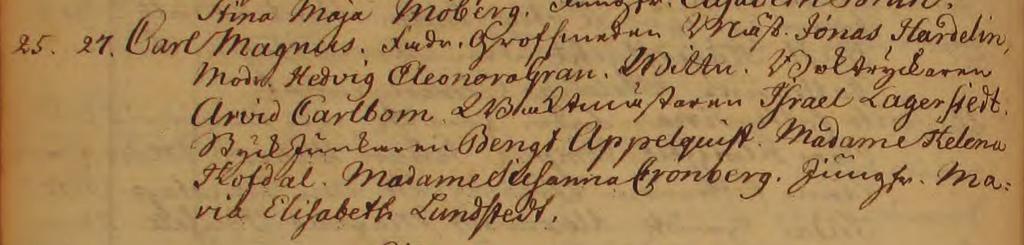 Stina Maja Moberg. Jungfr.
25. 27. Carl Magnus. Fadr. Grofsmeden Mäst. Jonas Hardelin,
Modr. Hedvig Eleonora Gran. Wittn. Boktryckaren
Arvid Carlbom. Waktmästaren Israel Lagerstedt.
Styckjunkaren Bengt Appelquist. Madame Helena
Hofdal. Madame Susanna Cronberg. Jungfr. Ma=
ria Elisabeth Lundstedt.